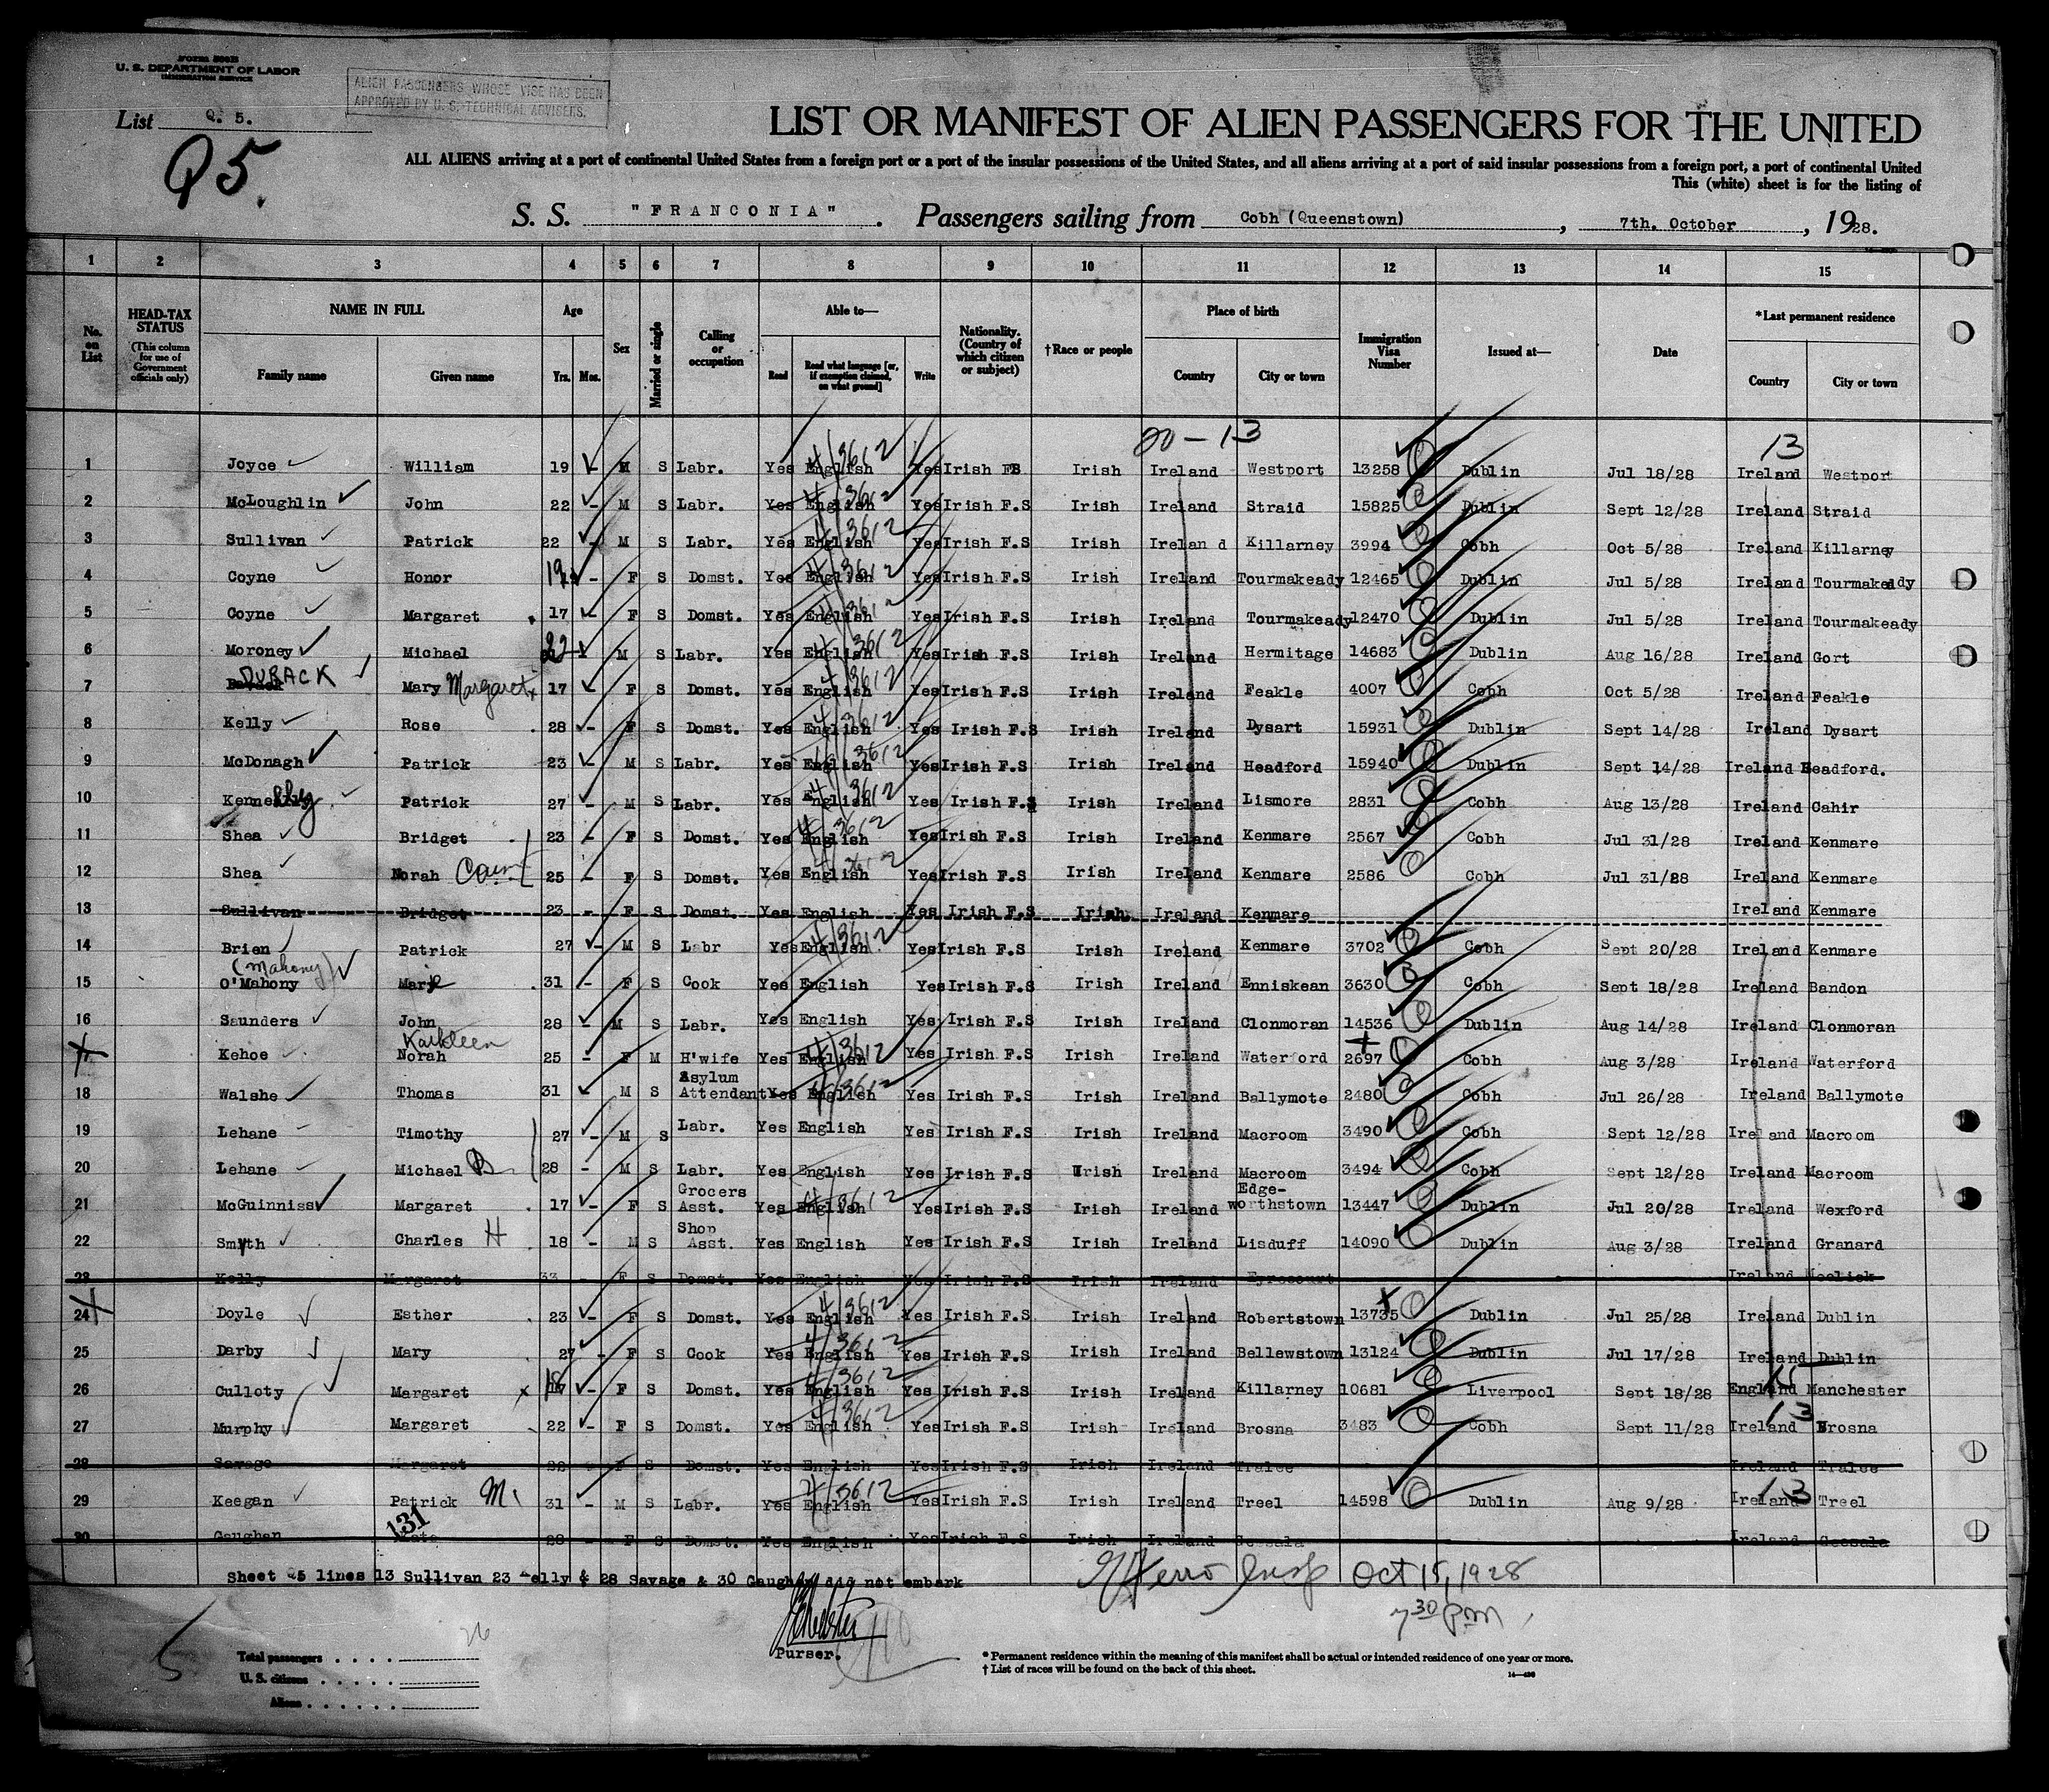 Form 500B
U. S. DEPARTMENT OF LABOR
IMMIGRATION SERVICE
ALIEN PASSENGERS WHOSE VISE HAS BEEN
APPROVED BY U. S. TECHNICAL ADVISERS.
List Q. 5.
Q5.
LIST OR MANIFEST OF ALIEN PASSENGERS FOR THE UNITED
ALL ALIENS arriving at a port of continental United States from a foreign port or a port of the insular possessions of the United States, and all aliens arriving at a port of said insular possessions from a foreign port, a port of continental United
This (white) sheet is for the listing of
S. S. "FRANCONIA". Passengers sailing from Cobh (Queenstown), 7th. October, 1928.
1 2 3 4 5 6 7 8 9 10 11 12 13 14 15
No. on List
HEAD-TAX STATUS (This column for use of Government officials only)
NAME IN FULL Family name Given name
Age Yrs. Mos.
Sex
Married or single
Calling or occupation
Able to— Read Read what language [or, if exemption claimed, on what ground] Write
Nationality. (Country of which citizen or subject)
†Race or people
Place of birth Country City or town
Immigration Visa Number
Issued at—
Date
*Last permanent residence Country City or town
20-13 13
1 Joyce William 19 - M S Labr. Yes English 4/3612 Yes Irish Irish Ireland Westport 13258 Dublin Jul 18/28 Ireland Westport
2 McLoughlin John 22 - M S Labr. Yes English 4/3612 Yes Irish F.S Irish Ireland Straid 15825 Dublin Sept 12/28 Ireland Straid
3 Sullivan Patrick 22 - M S Labr. Yes English 4/3612 Yes Irish F.S Irish Irelan d Killarney 3994 Cobh Oct 5/28 Ireland Killarney
4 Coyne Honor 19 - F S Domst. Yes English 4/3612 Yes Irish F.S Irish Ireland Tourmakeady 12465 Dublin Jul 5/28 Ireland Tourmakeady
5 Coyne Margaret 17 - F S Domst. Yes English 4/3612 Yes Irish F.S Irish Ireland Tourmakeady 12470 Dublin Jul 5/28 Ireland Tourmakeady
6 Moroney Michael 22 - M S Labr. Yes English 4/3612 Yes Irish F.S Irish Ireland Hermitage 14683 Dublin Aug 16/28 Ireland Gort
7 DURACK Mary Margaret x 17 - F S Domst. Yes English 4/3612 Yes Irish F.S Irish Ireland Feakle 4007 Cobh Oct 5/28 Ireland Feakle
8 Kelly Rose 28 - F S Domst. Yes English 4/3612 Yes Irish F.S Irish Ireland Dysart 15931 Dublin Sept 14/28 Ireland Dysart
9 McDonagh Patrick 23 - M S Labr. Yes English 4/3612 Yes Irish F.S Irish Ireland Headford 15940 Dublin Sept 14/28 Ireland Headford.
10 Patrick 27 - M S Labr. Yes English 4/3612 Yes Irish F.S Irish Ireland Lismore 2831 Cobh Aug 13/28 Ireland Cahir
11 Shea Bridget 23 - F S Domst. Yes English 4/3612 Yes Irish F.S Irish Ireland Kenmare 2567 Cobh Jul 31/28 Ireland Kenmare
12 Shea Norah 25 - F S Domst. Yes English 4/3612 Yes Irish F.S Irish Ireland Kenmare 2586 Cobh Jul 31/28 Ireland Kenmare
13 Sullivan Bridget 23 - F S Domst. Yes English Yes Irish F.S Irish Ireland Kenmare Ireland Kenmare
14 Brien Patrick 27 - M S Labr Yes English 4/3612 Yes Irish F.S Irish Ireland Kenmare 3702 Cobh Sept 20/28 Ireland Kenmare
(Mahony)
15 O'Mahony 31 - F S Cook Yes English Yes Irish F.S Irish Ireland Enniskean 3630 Cobh Sept 18/28 Ireland Bandon
16 Saunders John 28 - M S Labr. Yes English Yes Irish F.S Irish Ireland Clonmoran 14536 Dublin Aug 14/28 Ireland Clonmoran
Kathleen
Kehoe Norah 25 - F M H'wife Yes English 4/3612 Yes Irish F.S Irish Ireland Waterford 2697 Cobh Aug 3/28 Ireland Waterford
18 Walshe Thomas 31 M S Asylum Attendant Yes English 4/3612 Yes Irish F.S Irish Ireland Ballymote 2480 Cobh Jul 26/28 Ireland Ballymote
19 Lehane Timothy 27 - M S Labr. Yes English Yes Irish F.S Irish Ireland Macroom 3490 Cobh Sept 12/28 Ireland Macroom
20 Lehane Michael 28 - M S Labr. Yes English Yes Irish F.S Irish Ireland Macroom 3494 Cobh Sept 12/28 Ireland Macroom
21 McGuinniss Margaret 17 - F S Grocers Asst. Yes English 4/3612 Yes Irish F.S Irish Ireland Edge-worthstown 13447 Dublin Jul 20/28 Ireland Wexford
22 Smyth Charles H 18 - M S Shop Asst. Yes English Yes Irish F.S Irish Ireland Lisduff 14090 Dublin Aug 3/28 Ireland Granard
23 Kelly Margaret 33 - F S Domst. Yes English Yes Irish F.S Irish Ireland Eyrecourt Ireland Meelick
24 Doyle Esther 23 - F S Domst. Yes English 4/3612 Yes Irish F.S Irish Ireland Robertstown 13735 Dublin Jul 25/28 Ireland Dublin
25 Darby Mary 27 - F S Cook Yes English 4/3612 Yes Irish F.S Irish Ireland Bellewstown 13124 Dublin Jul 17/28 Ireland Dublin
26 Culloty Margaret x 18 - F S Domst. Yes English 4/3612 Yes Irish F.S Irish Ireland Killarney 10681 Liverpool Sept 18/28 England Manchester
27 Murphy Margaret 22 - F S Domst. Yes English 4/3612 Yes Irish F.S Irish Ireland Brosna 3483 Cobh Sept 11/28 13 Ireland Brosna
28 Savage Margaret 28 - F S Domst. Yes English Yes Irish F.S Irish Ireland Tralee Ireland Tralee
29 Keegan Patrick M. 31 - M S Labr. Yes English 4/3612 Yes Irish F.S Irish Ireland Treel 14598 Dublin Aug 9/28 13 Ireland Treel
131
30 Gaughan Kate 28 - F S Domst. Yes English Yes Irish F.S Irish Ireland Geesala Ireland Geesala
Sheet Q5 lines 13 Sullivan 23 Kelly & 28 Savage & 30 Gaughan did not embark
Insp Oct 15, 1928
7 30 P.M.
Purser.
5
26
Total passengers
U. S. citizens
Aliens
* Permanent residence within the meaning of this manifest shall be actual or intended residence of one year or more.
† List of races will be found on the back of this sheet.